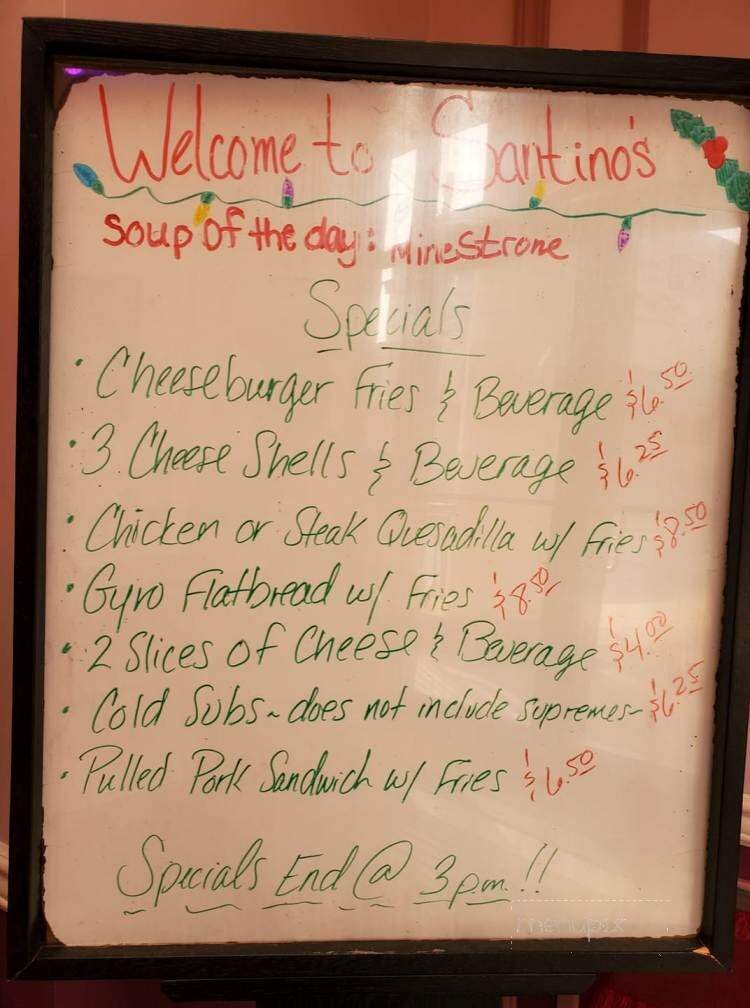 Welcome to Santino's
Soup of the day: MineStrone
Specials
• Cheeseburger Fries & Beverage $6.50
• 3 Cheese Shells & Beverage $6.25
• Chicken or Steak Quesadilla w/ Fries $8.50
• Gyro Flatbread w/ Fries $8.50
• 2 Slices of Cheese & Beverage $4.00
• Cold Subs ~ does not include supremes ~ $6.25
• Pulled Pork Sandwich w/ Fries $6.50
Specials End @ 3 p.m. !!
menupix